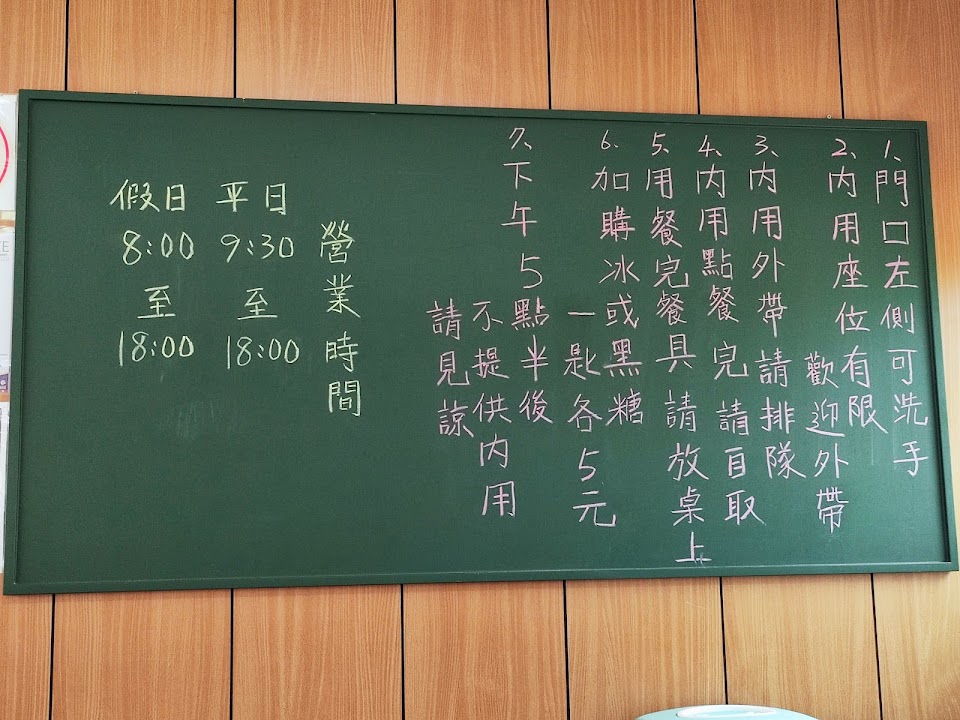 1、門口左側可洗手
2、內用座位有限
歡迎外帶
3、內用外帶請排隊
4、內用點餐完請自取
5、用餐完餐具請放桌上
6、加購冰或黑糖
一匙各5元
7、下午5點半後
不提供內用
請見諒
營業時間
平日
9:30
至
18:00
假日
8:00
至
18:00